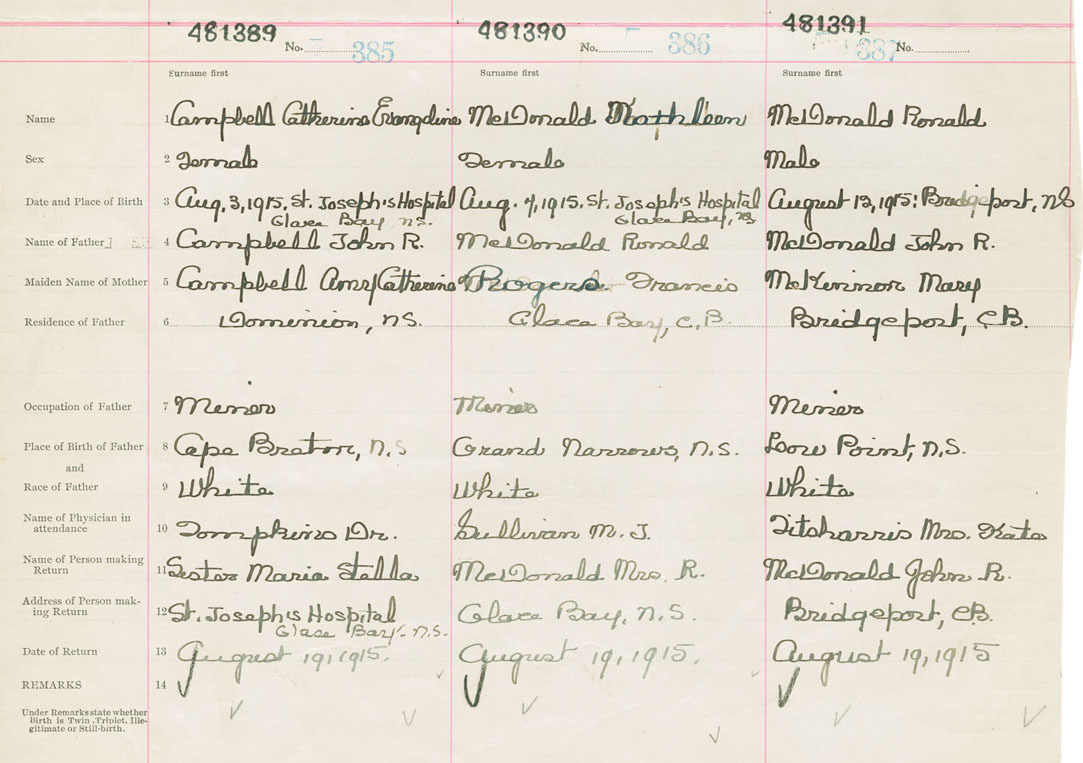 481389 481390 481391
No. 385 No. 386 387 No.
Surname first Surname first Surname first
Name 1 Campbell Catherine Evangeline McDonald Kathleen McDonald Ronald
Sex 2 Female Female Male
Date and Place of Birth 3 Aug. 3, 1915. St. Joseph's Hospital Aug. 4, 1915. St. Joseph's Hospital August 13, 1915: Bridgeport, NS
Glace Bay N.S. Glace Bay, NS
Name of Father 4 Campbell John R. McDonald Ronald McDonald John R.
Maiden Name of Mother 5 Campbell Amy Catherine Rogers Francis McKinnon Mary
Residence of Father 6 Dominion, NS. Glace Bay, C.B. Bridgeport, CB.
Occupation of Father 7 Miner Miner Miner
Place of Birth of Father 8 Cape Breton, N.S Grand Narrows, N.S. Low Point, N.S.
and
Race of Father 9 White White White
Name of Physician in
attendance 10 Tompkins Dr. Sullivan M. J. Fitsharris Mrs. Kate
Name of Person making
Return 11 Sister Maria Stella McDonald Mrs. R. McDonald John R.
Address of Person mak-
ing Return 12 St. Joseph's Hospital Glace Bay, N.S. Bridgeport, CB.
Glace Bay. N.S.
Date of Return 13 August 19, 1915. August 19, 1915. August 19, 1915
REMARKS 14
Under Remarks state whether
Birth is Twin, Triplet, Ille-
gitimate or Still-birth.